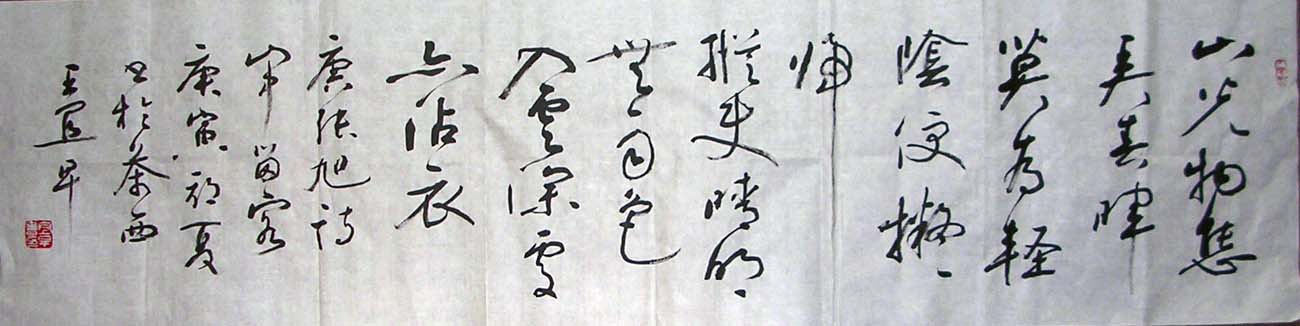 山光物態
弄春暉
莫為輕
陰便擬
歸
縱使晴明
無雨色
入雲深處
亦沾衣
唐張旭詩
山中留客
庚寅初夏
书於西
王